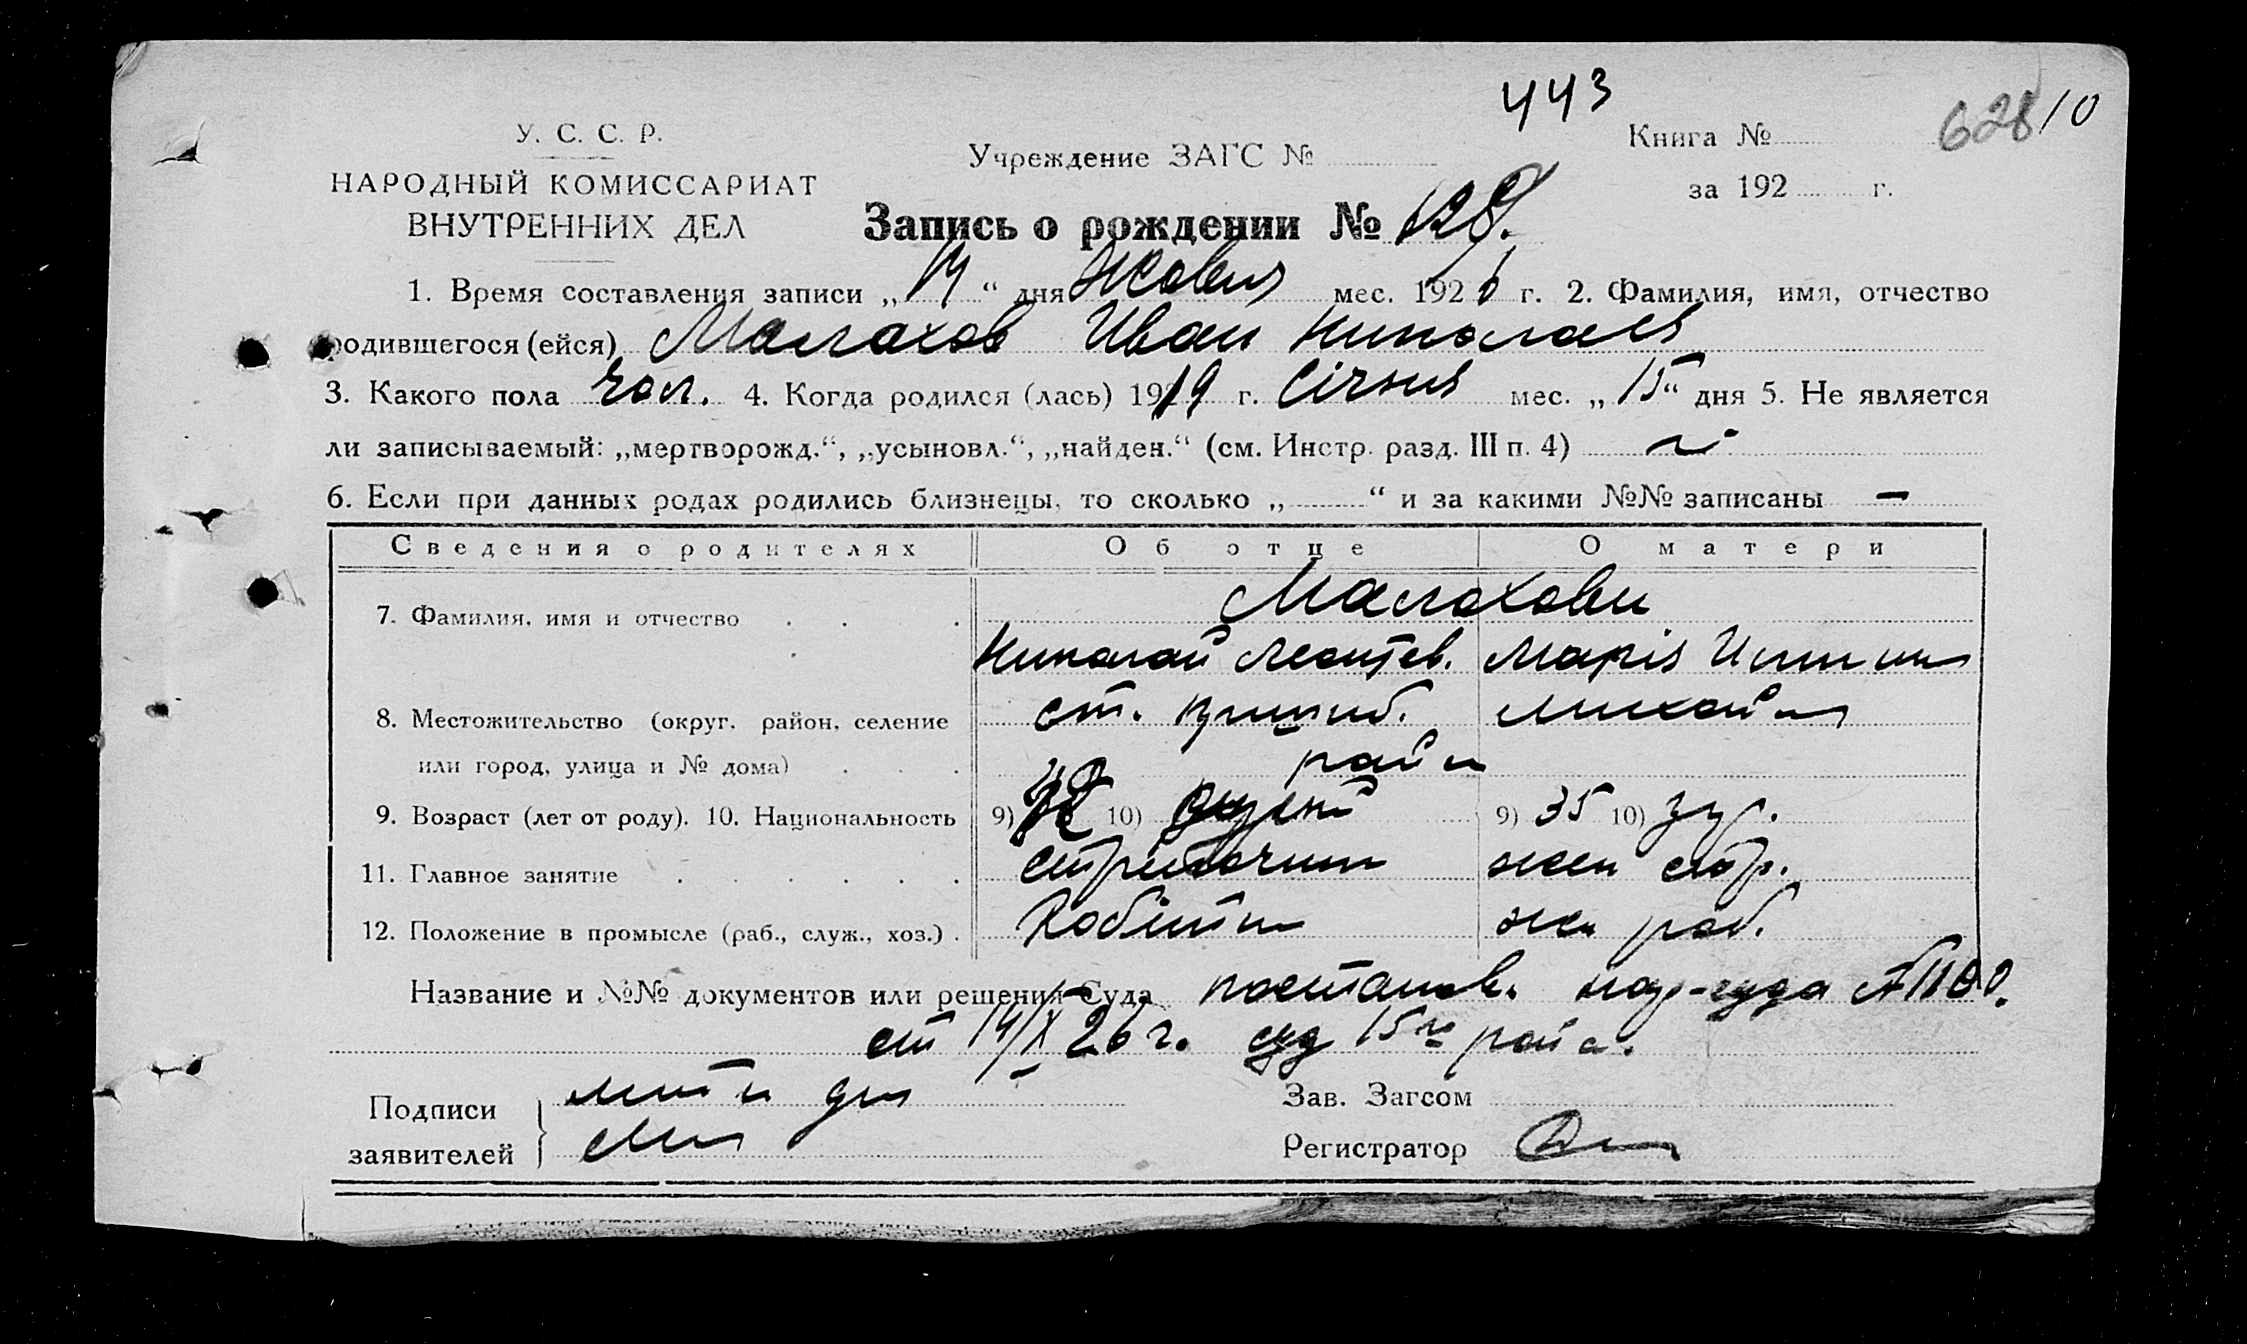 443
628 10
У. С. С. Р.
НАРОДНЫЙ КОМИССАРИАТ
ВНУТРЕННИХ ДЕЛ
Учреждение ЗАГС №
Книга №
за 192 г.
Запись о рождении № 128.
1. Время составления записи „ “ дня Жовтня мес. 1926 г. 2. Фамилия, имя, отчество
родившегося (ейся) Малахов Иван Николаев
3. Какого пола чол. 4. Когда родился (лась) 1919 г. Січня мес. „15“ дня 5. Не является
ли записываемый: „мертворожд.“, „усыновл.“, „найден.“ (см. Инстр. разд. III п. 4)
6. Если при данных родах родились близнецы, то сколько „ “ и за какими №№ записаны —
Сведения о родителях Об отце О матери
7. Фамилия, имя и отчество Малахови
Николай Леонтев. Марія
8. Местожительство (округ, район, селение ст.
или город, улица и № дома) район
9. Возраст (лет от роду). 10. Национальность 9) 10) 9) 35 10)
11. Главное занятие жен
12. Положение в промысле (раб., служ., хоз.) Робітн жен роб.
Название и №№ документов или решения Суда постанов. нар-суда
от 14/X 26 г. суд 15го района.
Подписи
заявителей
Зав. Загсом
Регистратор